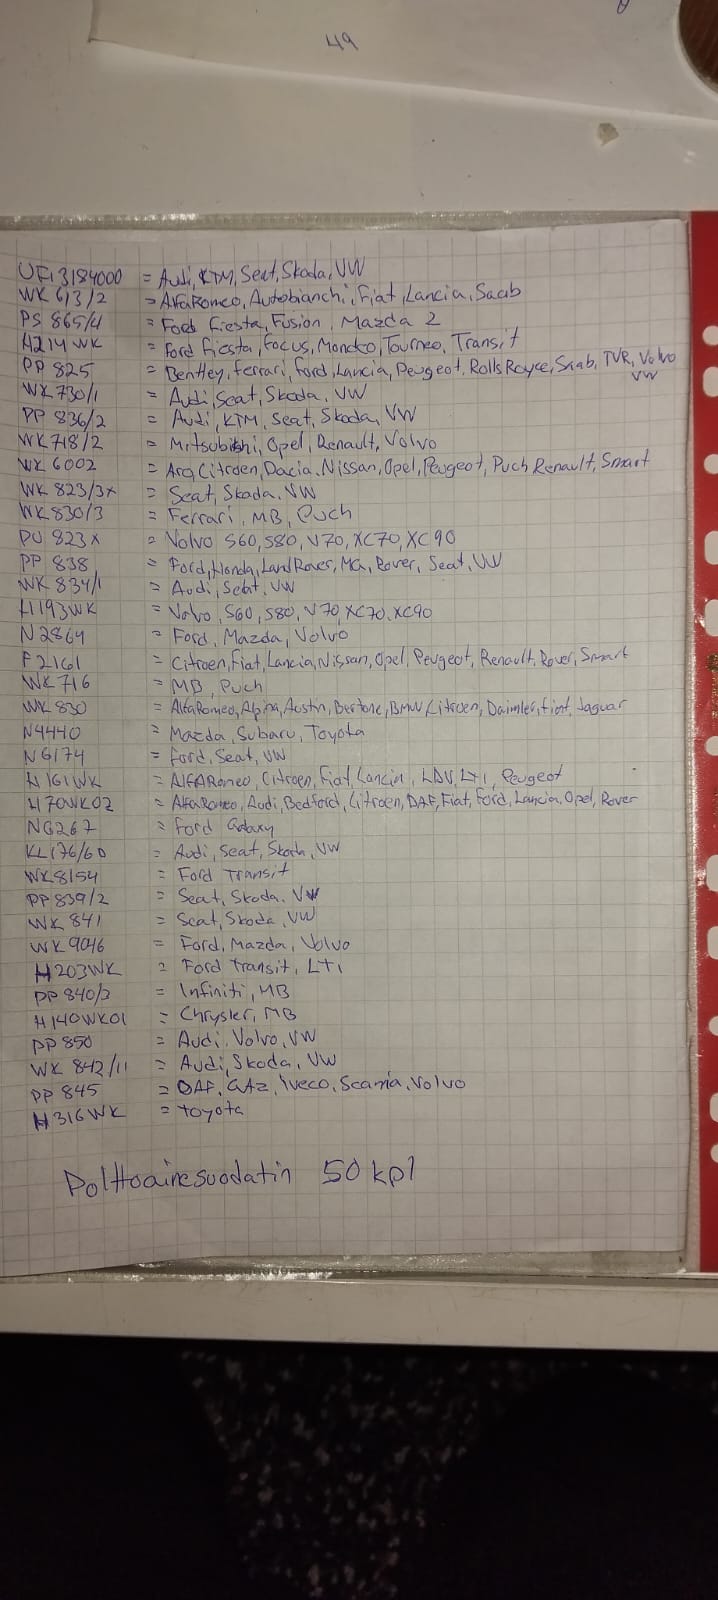 49
UFI 3184000 = Audi, KTM, Seat, Skoda, VW
WK 613/2 = AlfaRomeo, Autobianchi, Fiat, Lancia, Saab
PS 865/4 = Ford Fiesta, Fusion, Mazda 2
H214WK = Ford Fiesta, Focus, Mondeo, Tourneo, Transit
PP 825 = Bentley, Ferrari, Ford, Lancia, Peugeot, RollsRoyce, Saab, TVR, Volvo
VW
WK 730/1 = Audi, Seat, Skoda, VW
PP 836/2 = Audi, KTM, Seat, Skoda, VW
WK 718/2 = Mitsubishi, Opel, Renault, Volvo
WK 6002 = Aro, Citroen, Dacia, Nissan, Opel, Peugeot, Puch Renault, Smart
WK 823/3x = Seat, Skoda, VW
WK 830/3 = Ferrari, MB, Puch
PU 823x = Volvo S60, S80, V70, XC70, XC90
PP 838 = Ford, Honda, LandRover, MG, Rover, Seat, VW
WK 834/1 = Audi, Seat, VW
H193WK = Volvo, S60, S80, V70, XC70, XC90
N2864 = Ford, Mazda, Volvo
F2161 = Citroen, Fiat, Lancia, Nissan, Opel, Peugeot, Renault, Rover, Smart
WK 716 = MB, Puch
WK 830 = AlfaRomeo, Alpina, Austin, Bertone, BMW, Citroen, Daimler, Fiat, Jaguar
N4440 = Mazda, Subaru, Toyota
N6174 = Ford, Seat, VW
H161WK = AlFARomeo, Citroen, Fiat, Lancia, LDV, LTI, Peugeot
H70WK02 = AlfaRomeo, Audi, Bedford, Citroen, DAF, Fiat, Ford, Lancia, Opel, Rover
N6267 = Ford Galaxy
KL 176/6D = Audi, Seat, Skoda, VW
WK8154 = Ford Transit
PP 839/2 = Seat, Skoda, VW
WK 841 = Seat, Skoda, VW
WK 9046 = Ford, Mazda, Volvo
H203WK = Ford Transit, LTI
PP 840/3 = Infiniti, MB
H140WK01 = Chrysler, MB
PP 850 = Audi, Volvo, VW
WK 842/11 = Audi, Skoda, VW
PP 845 = DAF, GAZ, Iveco, Scania, Volvo
H316WK = Toyota
Polttoainesuodatin 50 kpl